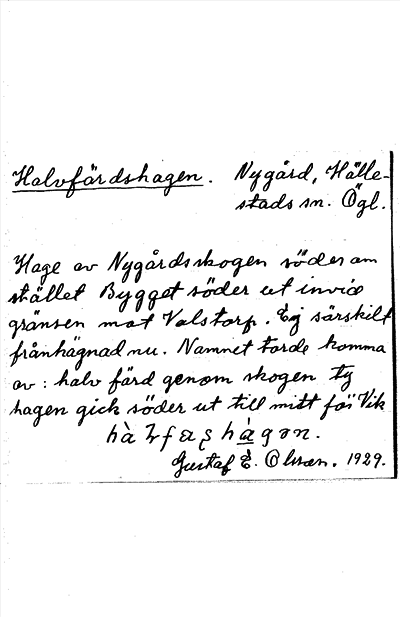 Halvfärdshagen. Nygård, Hälle-
stads sn. Ögl.
Hage av Nygårdsskogen söder om
stället Bygget söder ut invid
gränsen mot Valstorp. Ej särskilt
frånhägnad nu. Namnet torde komma
av: halv färd genom skogen ty
hagen gick söder ut till mitt för Vik
Gustaf E. Olsson. 1929.